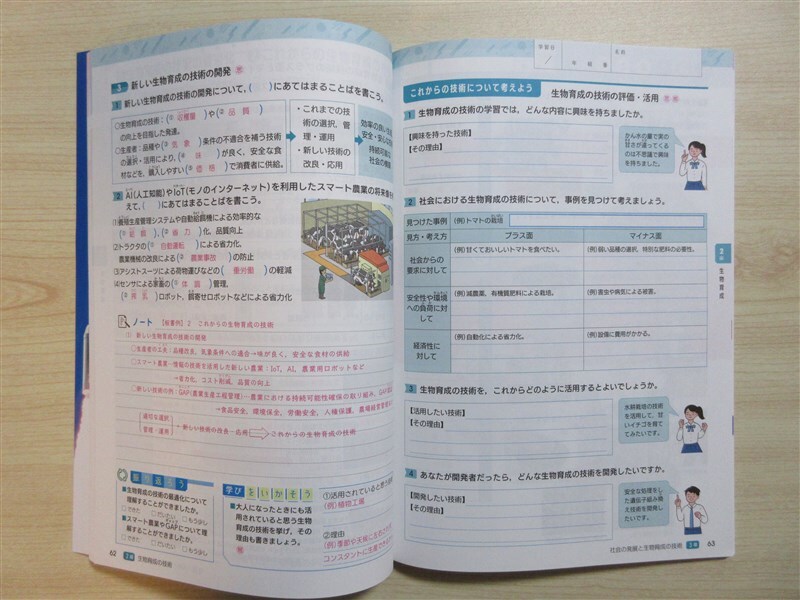 3 新しい生物育成の技術の開発
1 新しい生物育成の技術の開発について,( )にあてはまることばを書こう。
○生物育成の技術:(① 収穫量 )や(② 品質 )
の向上を目指した発達。
○生産者:品種や(③ 気象 )条件の不適合を補う技術
の選択・活用により,(④ 味 )が良く、安全な食
材などを,購入しやすい(⑤ 価格 )で消費者に供給。
・これまでの技
術の選択,管
理・運用
・新しい技術の
改良・応用
効率の良い生
安全・安心の
持続可能な
社会の構築
2 AI(人工知能)やIoT(モノのインターネット)を利用したスマート農業の将来像を
えて,( )にあてはまることばを書こう。
(1)養殖生産管理システムや自動給餌機による効率的な
(① 給餌 ),(② 省力 )化,品質向上
(2)トラクタの(③ 自動運転 )による省力化,
農業機械の改良による(④ 農業事故 )の防止
(3)アシストスーツによる荷物運びなどの(⑤ 重労働 )の軽減
(4)センサによる家畜の(⑥ 体調 )管理,
(⑦ 搾乳 )ロボット,餌寄せロボットなどによる省力化
ノート
【板書例】2 これからの生物育成の技術
① 新しい生物育成の技術の開発
○生産者の工夫:品種改良,気象条件への適合→味が良く,安全な食材の供給
○スマート農業・情報の技術を活用した新しい農業:IoT,AI,農業用ロボットなど
→省力化,コスト削減,品質の向上
○新しい技術の例:GAP(農業生産工程管理)…農業における持続可能性確保の取り組み,GAP認証
→食品安全,環境保全,労働安全,人権保護,農場経営管理
適切な選択
管理・運用
→新しい技術の改良・応用
これからの生物育成の技術
振り返ろう
■生物育成の技術の最適化について
理解することができましたか。
□できた □だいたい □もう少し
■スマート農業やGAPについて理
解することができましたか。
□できた □だいたい □もう少し
学びをいかそう
■大人になったときにも活
用されていると思う生物
育成の技術を挙げ,その
理由も書きましょう。
①活用されていると思う
(例)植物工場
②理由
(例)季節や天候に左右されず
コンスタントに生産できる
62 2編 生物育成の技術
学習日
/
年 組 番
名前
これからの技術について考えよう 生物育成の技術の評価・活用
1 生物育成の技術の学習では,どんな内容に興味を持ちましたか。
【興味を持った技術】
【その理由】
かん水の量で実の
甘さが違ってくる
のは不思議で興味
を持ちました。
2 社会における生物育成の技術について,事例を見つけて考えましょう。
見つけた事例 (例)トマトの栽培
見方・考え方 プラス面 マイナス面
社会からの
要求に対して
(例)甘くておいしいトマトを食べたい。
(例)弱い品種の選択,特別な肥料の必要性。
安全性や環境
への負荷に対
して
(例)減農薬,有機質肥料による栽培。
(例)害虫や病気による被害。
経済性に
対して
(例)自動化による省力化。
(例)設備に費用がかかる。
3 生物育成の技術を,これからどのように活用するとよいでしょうか。
【活用したい技術】
【その理由】
水耕栽培の技術
を活用して,甘
いイチゴを育て
てみたいです。
4 あなたが開発者だったら,どんな生物育成の技術を開発したいですか。
【開発したい技術】
【その理由】
安全な処理をし
た遺伝子組み換
え技術を開発し
たいです。
2編 生物育成
社会の発展と生物育成の技術 2編 63